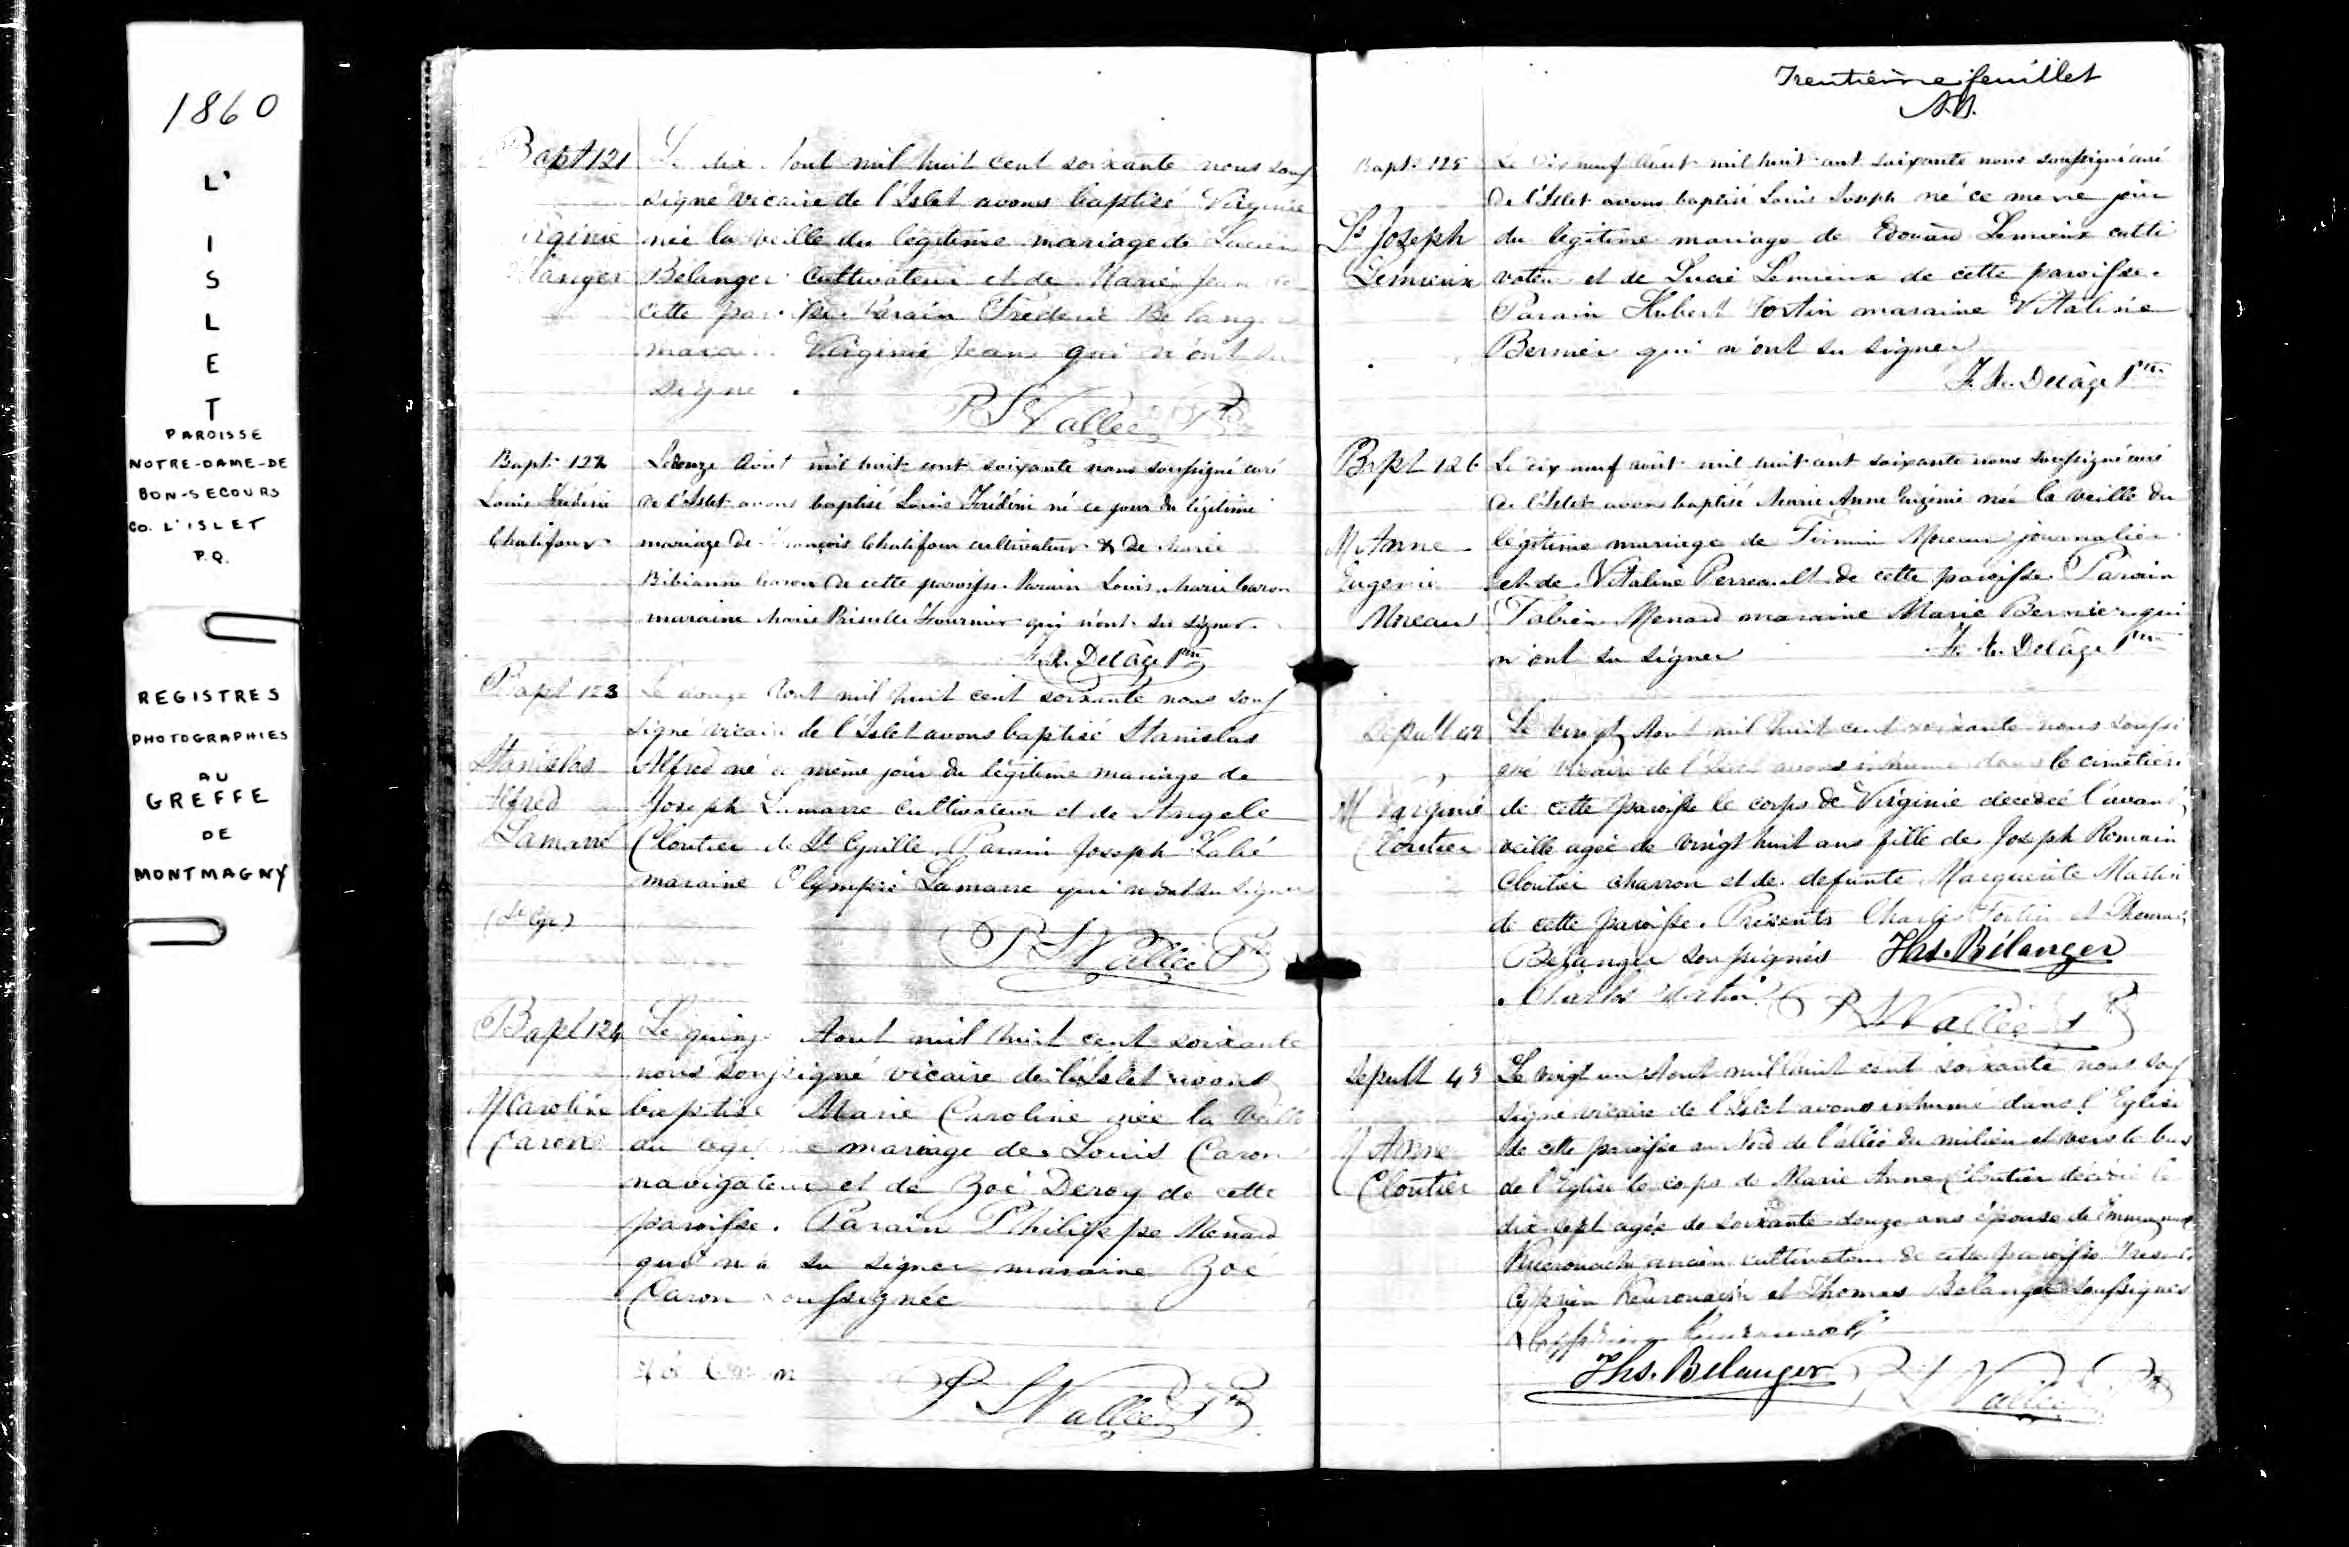 1860
L'
I
S
L
E
T
PAROISSE
NOTRE-DAME-DE
BON-SECOURS
CO. L'ISLET
P.Q.
REGISTRES
PHOTOGRAPHIES
AU
GREFFE
DE
MONTMAGNY
Bapt 121
Le dix Aout mil huit cent soixante nous sous
signé vicaire de l'Islet avons baptisé Virginie
née la veille du légitime mariage de Lucien
Bélanger Cultivateur et de Marie Jean de
cette par Parain Fréderic Bélang
marai Virginie Jean qui n'ont su
signe
P S Vallée Ptre
Bapt. 122
Louis Fréderic
Chalifour
Le douze Août mil huit cent soixante nous soussigné curé
de l'Islet avons baptisé Louis Fréderic né ce jour du légitime
mariage de François Chalifour cultivateur & de Marie
Bibianne Caron de cette paroisse. Parain Louis Marie Caron
maraine Marie Priscille Fournier qui n'ont su signer.
F. X. Delâge Ptre
Bapt 123
Stanislas
Alfred
Lamarre
(St Cyr)
Le douze Aout mil huit cent soixante nous sous
signé vicaire de l'Islet avons baptisé Stanislas
Alfred né ce même jour du légitime mariage de
Joseph Lamarre Cultivateur et de Angele
Cloutier de St Cyrille. Parain Joseph
maraine Olympie Lamarre qui n'ont su signer
P S Vallée Ptre
Bapt 124
M Caroline
Caron
Le quinze Aout mil huit cent soixante
nous soussigné vicaire de l'Islet avons
baptisé Marie Caroline née la veille
du legitime mariage de Louis Caron
navigateur et de Zoé Deroy de cette
paroisse. Parain Philippe Menard
qui n'a su signer maraine Zoé
Caron soussignée
P S Vallée Ptre
Trentième feuillet
Bapt. 125
Ls Joseph
Lemieux
Le dix neuf Août mil huit cent soixante nous soussigné curé
de l'Islet avons baptisé Louis Joseph né ce meme jour
du legitime mariage de Edouard Lemieux culti
vateur et de Lucie Lemieux de cette paroisse.
Parain Hubert Fortin maraine Vitaline
Bernier qui n'ont su signer
F. X. Delâge Ptre
Bapt 126
M Anne
Eugenie
Moreau
Le dix neuf août mil huit cent soixante nous soussigné curé
de l'Islet avons baptisé Marie Anne Eugénie née la veille du
légitime mariage de Firmin Moreau journalier
et de Vitaline Perreault de cette paroisse. Parain
Fabien Menard maraine Marie Bernier qui
n'ont su signer F. X. Delâge Ptre
Sepult 42
M Virginie
Cloutier
Le vingt Aout mil huit cent soixante nous soussi
gné vicaire de l'Islet avons inhumé dans le cimetière
de cette paroisse le corps de Virginie décédée l'avant
veille agée de vingt huit ans fille de Joseph Romain
Cloutier charron et de defunte Marguerite Martin
de cette paroisse. Présents Charles Fortin et Thomas
Bélanger soussignés Ths. Bélanger
Charles Fortin P S Vallée Ptre
Sepult 43
M Anne
Cloutier
Le vingt un Aout mil huit cent soixante nous sous
signé vicaire de l'Islet avons inhumé dans l'Eglise
de cette paroisse au Nord de l'allée du milieu et vers le bas
de l'Eglise le corps de Marie Anne Cloutier décédée le
dix sept agée de soixante douze ans épouse de Emmanuel
ancien cultivateur de cette paroisse. Presents
Cyprien et Thomas Belanger soussignés
Ths. Belanger P S Vallée Ptre